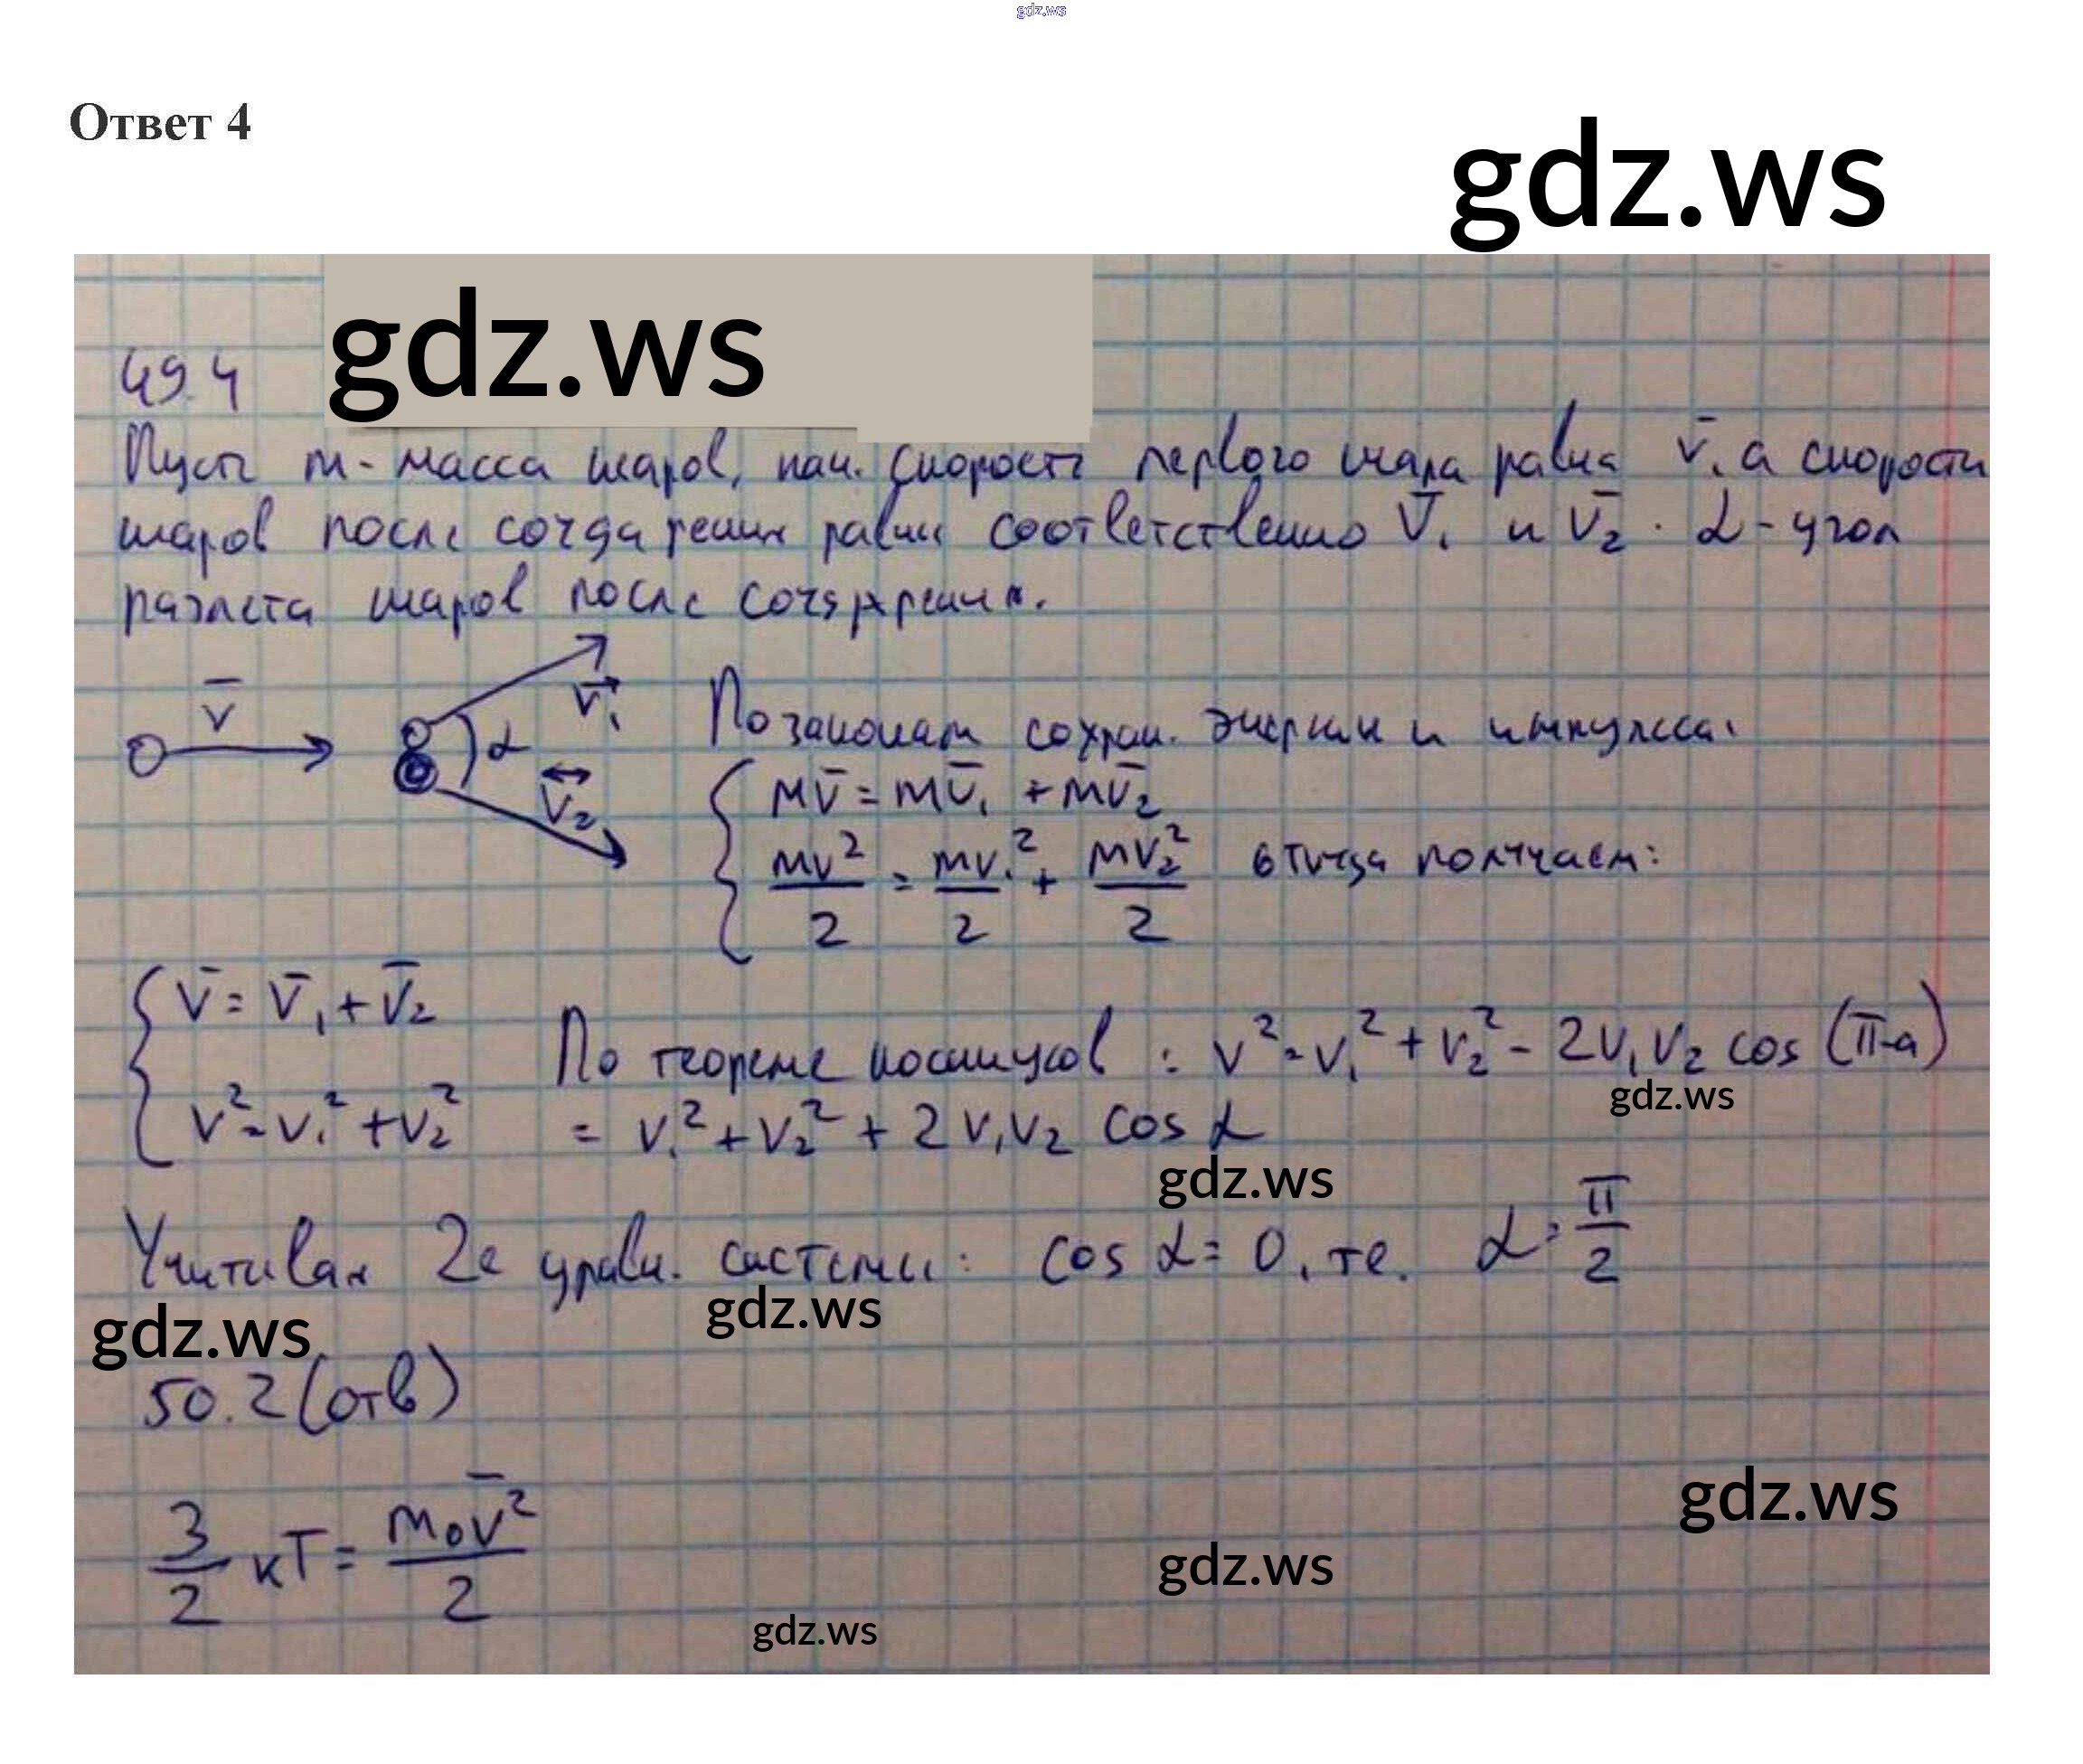 gdz.ws
Ответ 4
gdz.ws
gdz.ws
49.4
Пусть m - масса шаров, нач. скорость первого шара равна v̅, а скорости
шаров после соударения равны соответственно v̅₁ и v̅₂. α - угол
разлета шаров после соударения.
v̅
v⃗₁
α
v₂
По законам сохран. энергии и импульса:
mv̅ = mv̅₁ + mv̅₂
mv²/2 = mv₁²/2 + mv₂²/2 отсюда получаем:
v̅ = v̅₁ + v̅₂
v² = v₁² + v₂²
По теореме косинусов : v² = v₁² + v₂² - 2v₁v₂ cos (π-α)
gdz.ws
= v₁² + v₂² + 2v₁v₂ cos α
gdz.ws
Учитывая 2е уравн. системы: cos α = 0, те. α = π/2
gdz.ws
gdz.ws
50.2 (отв)
gdz.ws
3/2 кT = m₀v̅²/2
gdz.ws
gdz.ws